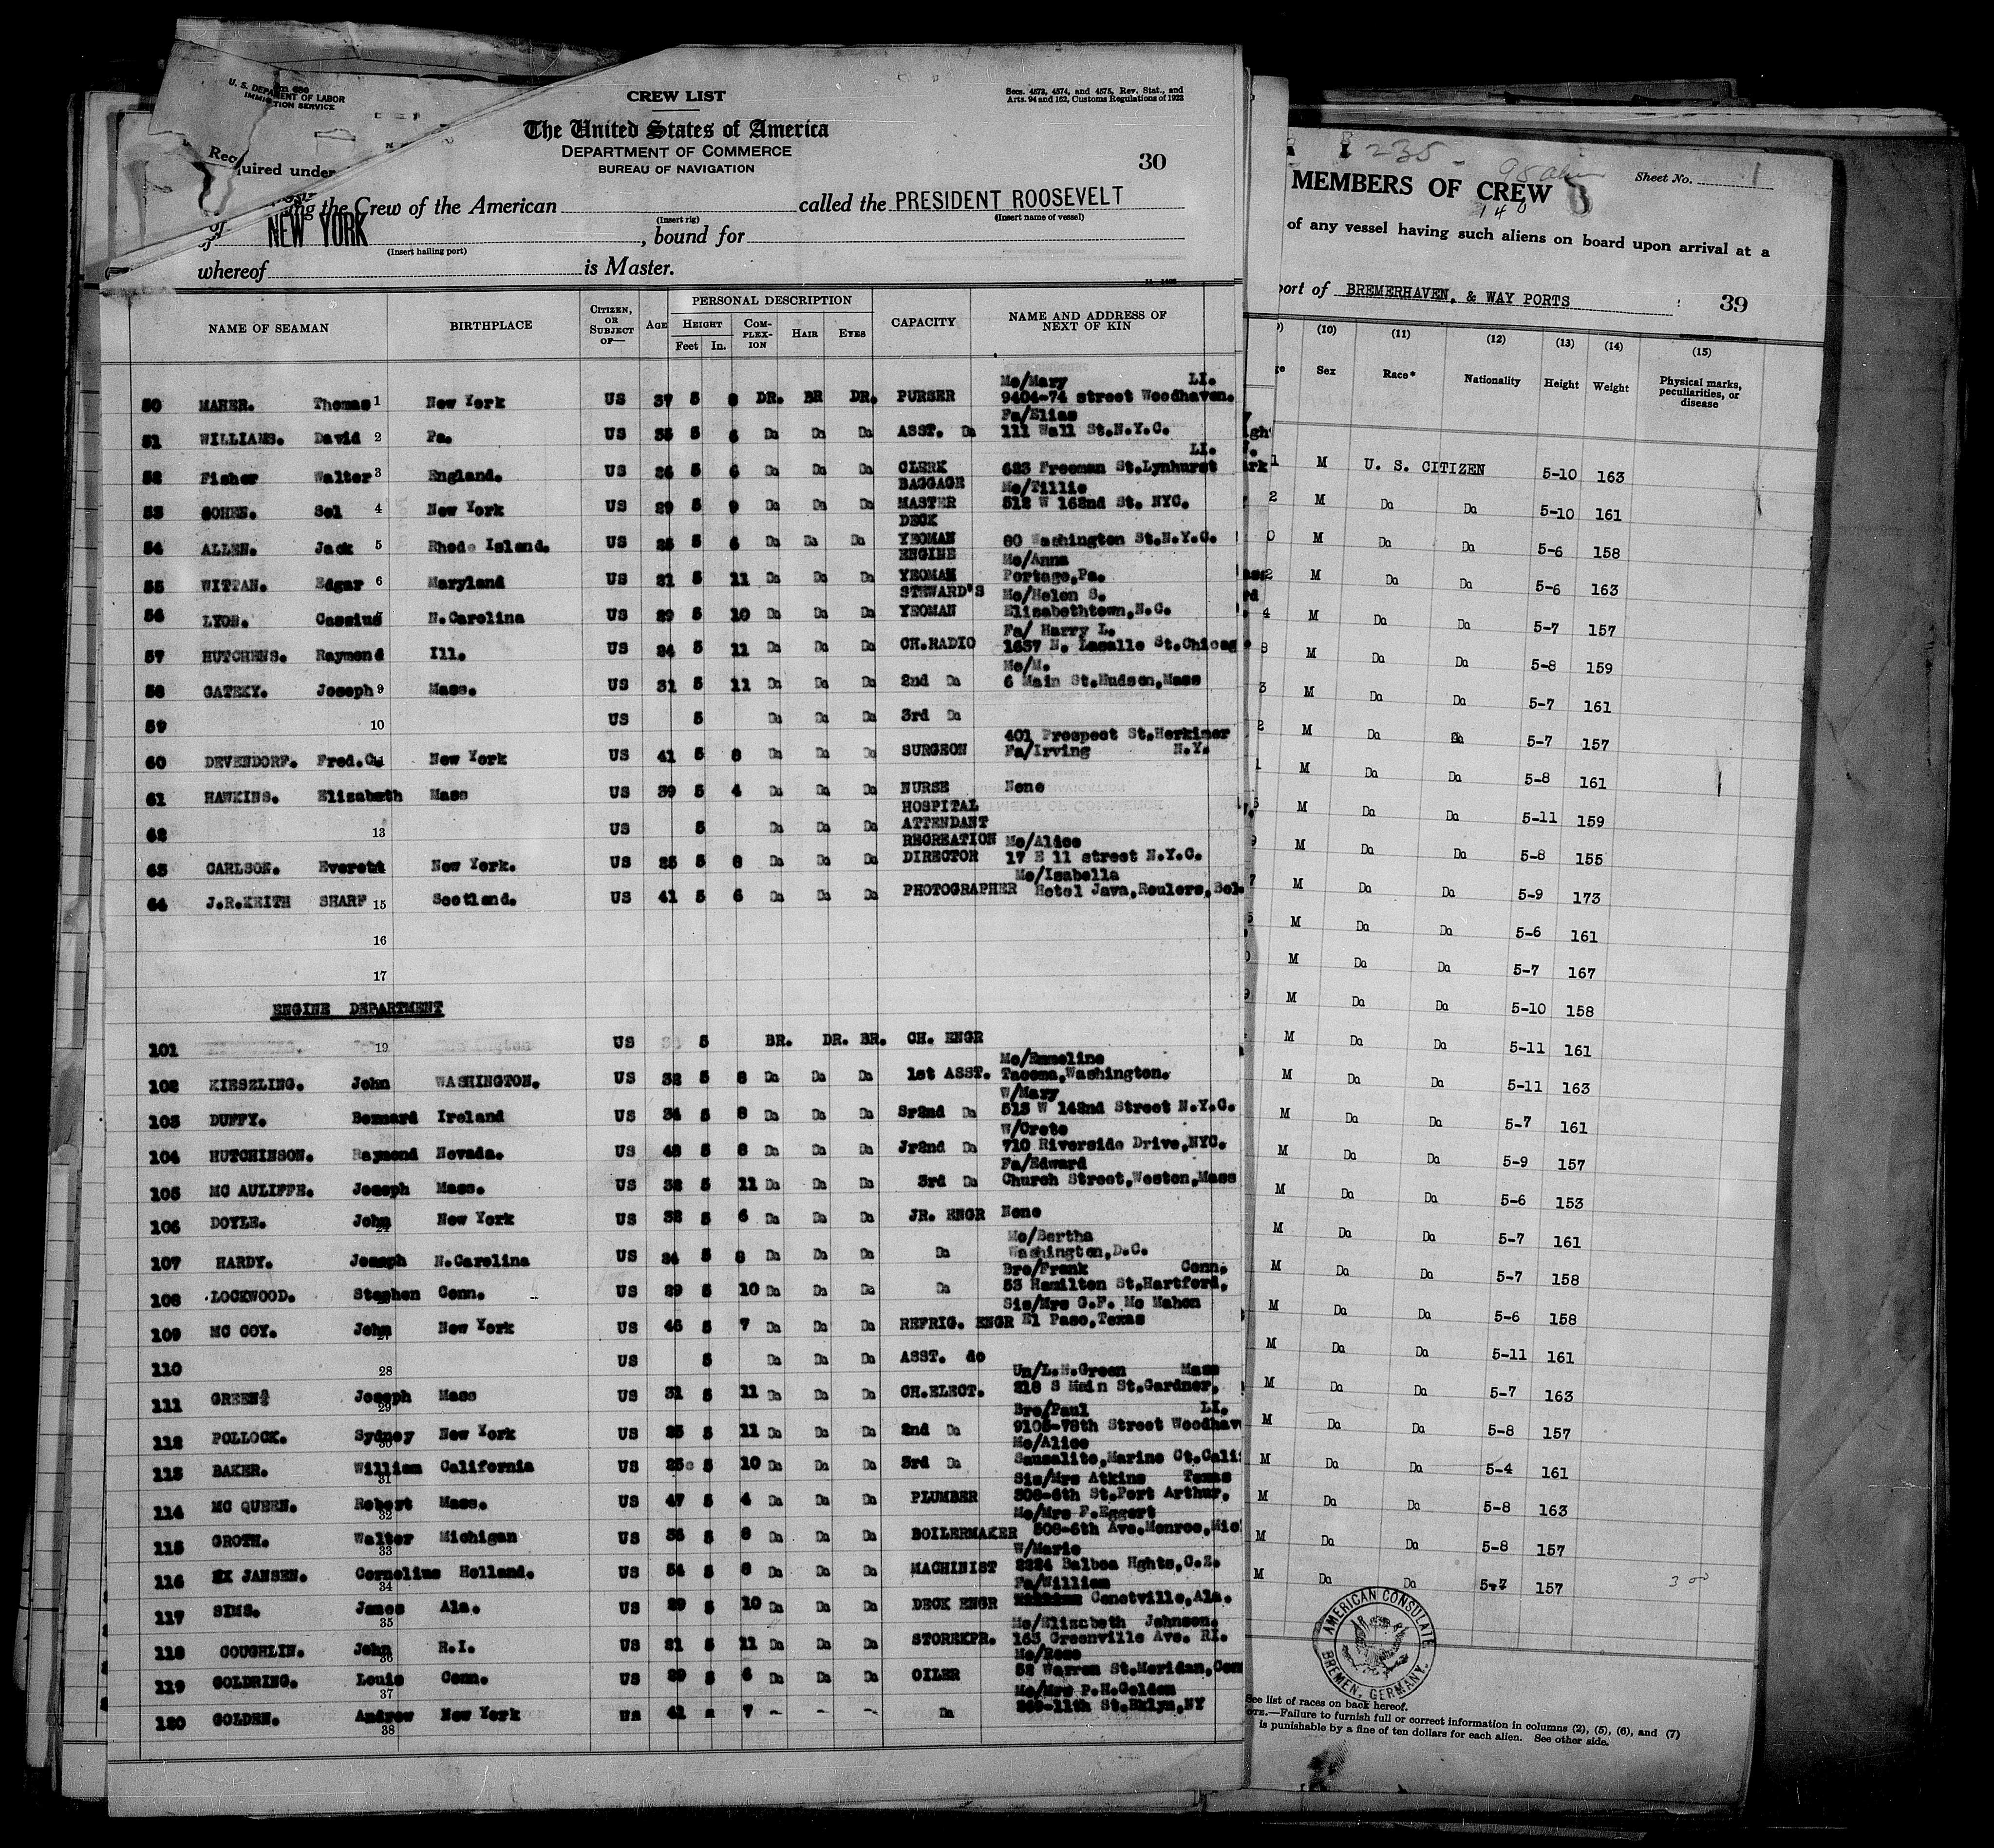 U. S. DEPARTMENT OF LABOR
IMMIGRATION SERVICE
Required under
CREW LIST
Secs. 4573, 4574, and 4575, Rev. Stat., and
Arts. 94 and 162, Customs Regulations of 1923
The United States of America
DEPARTMENT OF COMMERCE
BUREAU OF NAVIGATION
30
the Crew of the American called the PRESIDENT ROOSEVELT
(Insert rig) (Insert name of vessel)
of NEW YORK, bound for
(Insert hailing port)
whereof is Master.
PERSONAL DESCRIPTION
NAME OF SEAMAN BIRTHPLACE CITIZEN, OR SUBJECT OF— AGE HEIGHT Feet In. COMPLEXION HAIR EYES CAPACITY NAME AND ADDRESS OF NEXT OF KIN
Mo/Mary LI.
50 MAHER. Thomas 1 New York US 37 5 8 DR. BR DR. PURSER 9404-74 street Woodhaven.
Fa/Elias
51 WILLIAMS. David 2 Pa. US 35 5 6 Do Do Do ASST. Do 111 Wall St.N.Y.C.
LI.
52 Fisher Walter 3 England. US 26 5 6 Do Do Do CLERK 623 Freeman St.Lynhurst
BAGGAGE Mo/Tillie
53 COHEN. Sol 4 New York US 29 5 9 Do Do Do MASTER 512 W 162nd St. NYC.
DECK
54 ALLEN. Jack 5 Rhode Island. US 25 5 6 Do Do Do YEOMAN 80 Washington St.N.Y.C.
ENGINE Mo/Anna
55 WITTAN. Edgar 6 Maryland US 21 5 11 Do Do Do YEOMAN Portage,Pa.
STEWARD'S Mo/Helen S.
56 LYON. Cassius N.Carolina US 29 5 10 Do Do Do YEOMAN Elizabethtown,N.C.
Fa/ Harry L.
57 HUTCHENS. Raymond Ill. US 24 5 11 Do Do Do CH.RADIO 1637 N. Lasalle St.Chicag
Mo/M.
58 GATEKY. Joseph 9 Mass. US 31 5 11 Do Do Do 2nd Do 6 Main St.Hudson,Mass
59 10 US 5 Do Do Do 3rd Do
401 Prospect St.Herkimer
60 DEVENDORF. Fred.C. New York US 41 5 8 Do Do Do SURGEON Fa/Irving N.Y.
61 HAWKINS. Elizabeth Mass US 39 5 4 Do Do Do NURSE None
HOSPITAL
62 13 US 5 Do Do Do ATTENDANT
RECREATION Mo/Alice
63 CARLSON. Everett New York. US 25 5 8 Do Do Do DIRECTOR 17 E 11 street N.Y.C.
Mo/Isabella
64 J.R.KEITH SHARF 15 Scotland. US 41 5 6 Do Do Do PHOTOGRAPHER Hotel Java,Roulers,Bel.
16
17
ENGINE DEPARTMENT
101 19 US 5 BR. DR. BR. CH. ENGR
Mo/Emmeline
102 KIESZLING. John WASHINGTON. US 32 5 8 Do Do Do 1st ASST. Tacoma,Washington.
W/Mary
103 DUFFY. Bernard Ireland US 34 5 8 Do Do Do Sr2nd Do 513 W 142nd Street N.Y.C.
W/Crete
104 HUTCHINSON. Raymond Nevada. US 48 5 8 Do Do Do Jr2nd Do 710 Riverside Drive,NYC.
Fa/Edward
105 MC AULIFFE. Joseph Mass. US 32 5 11 Do Do Do 3rd Do Church Street,Weston,Mass
106 DOYLE. John New York US 32 5 6 Do Do Do JR. ENGR None
Mo/Bertha
107 HARDY. Joseph N.Carolina US 24 5 8 Do Do Do Do Washington,D.C.
Bro/Frank Conn.
108 LOCKWOOD. Stephen Conn. US 29 5 10 Do Do Do Do 53 Hamilton St.Hartford,
Sis/Mrs G.F. Mc Mahon
109 MC COY. John New York US 46 5 7 Do Do Do REFRIG. ENGR El Paso,Texas
110 28 US 5 Do Do Do ASST. do
Un/L.N.Green Mass
111 GREEN. Joseph 29 Mass US 31 5 11 Do Do Do CH.ELECT. 218 S Main St.Gardner,
Bro/Paul LI.
112 POLLOCK. Sydney 30 New York US 25 5 11 Do Do Do 2nd Do 9105-78th Street Woodhav
Mo/Alice
113 BAKER. William 31 California US 25 5 10 Do Do Do 3rd Do Sausalito,Marine Ct.Cali
Sis/Mrs Atkins Texas
114 MC QUEEN. Robert 32 Mass. US 47 5 4 Do Do Do PLUMBER 306-6th St.Port Arthur.
Mo/Mrs F.Eggert
115 GROTH. Walter 33 Michigan US 36 5 8 Do Do Do BOILERMAKER 508-6th Ave.Monroe,Mic
W/Marie
116 JANSEN. Cornelius 34 Holland. US 54 5 8 Do Do Do MACHINIST 2224 Balboa Hghts,C.Z.
Fa/William
117 SIMS. James 35 Ala. US 29 5 10 Do Do Do DECK ENGR Conotville,Ala.
Mo/Elizabeth Johnson.
118 COUGHLIN. John 36 R.I. US 21 5 11 Do Do Do STOREKPR. 163 Greenville Ave. RI.
Mo/Rose
119 GOLDRING. Louis 37 Conn. US 29 5 6 Do Do Do OILER 52 Warren St.Meridan,Con
Mo/Mrs P.H.Golden
120 GOLDEN. Andrew 38 New York US 41 7 Do 11th St.Bklyn,NY
235
Sheet No. 1
MEMBERS OF CREW
140
of any vessel having such aliens on board upon arrival at a
port of BREMERHAVEN, & WAY PORTS
39
(10) (11) (12) (13) (14) (15)
Sex Race* Nationality Height Weight Physical marks, peculiarities, or disease
M U. S. CITIZEN 5-10 163
M Do Do 5-10 161
M Do Do 5-6 158
M Do Do 5-6 163
M Do Do 5-7 157
M Do Do 5-8 159
M Do Do 5-7 161
M Do Do 5-7 157
M Do Do 5-8 161
M Do Do 5-11 159
M Do Do 5-8 155
M Do Do 5-9 173
M Do Do 5-6 161
M Do Do 5-7 167
M Do Do 5-10 158
M Do Do 5-11 161
M Do Do 5-11 163
M Do Do 5-7 161
M Do Do 5-9 157
M Do Do 5-6 153
M Do Do 5-7 161
M Do Do 5-7 158
M Do Do 5-6 158
M Do Do 5-11 161
M Do Do 5-7 163
M Do Do 5-8 157
M Do Do 5-4 161
M Do Do 5-8 163
M Do Do 5-8 157
M Do Do 5-7 157
AMERICAN CONSULATE
BREMEN, GERMANY.
See list of races on back hereof.
NOTE.—Failure to furnish full or correct information in columns (2), (5), (6), and (7)
is punishable by a fine of ten dollars for each alien. See other side.